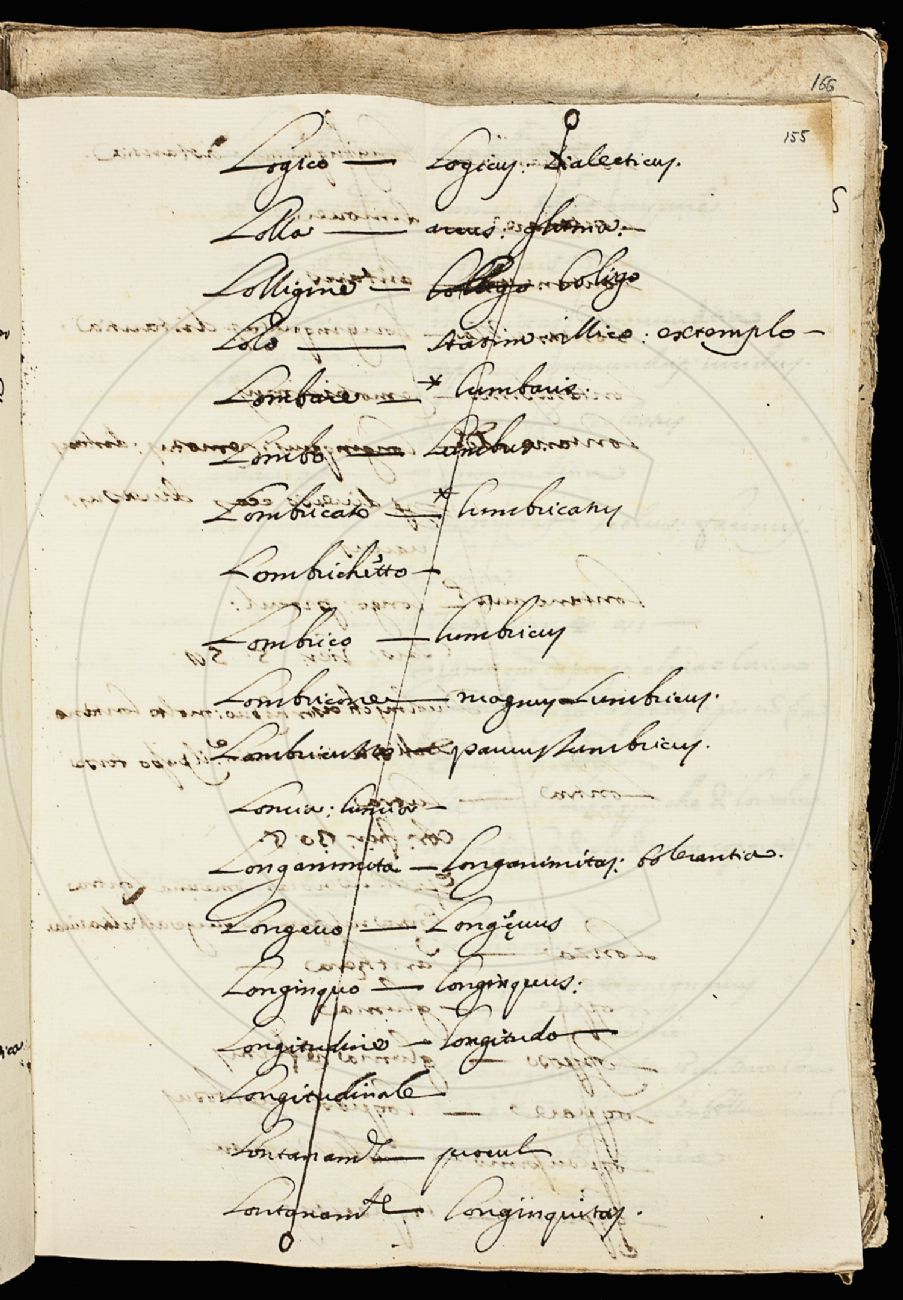 166
155
Logico — Logicus: Dialecticus.
Lolla — acus: gluma: —
Lolligine — lolligo loligo
Lolo — statim: illico: extemplo —
Lombare — * lumbaris.
Lombo — Lumbus.
Lombricato — * lumbricatus
Lombrichetto —
Lombrico — lumbricus
Lombricone — magnus Lumbricus.
Lombricuzzo — parvus lumbricus.
Loncia: luncia —
Longanimità — Longanimitas: tolerantia.
Longevo — Longęvus
Longinquo — longinquus:
Longitudine — longitudo —
Longitudinale
Lontanamte — procul
Lontanamte — Longinquitas.